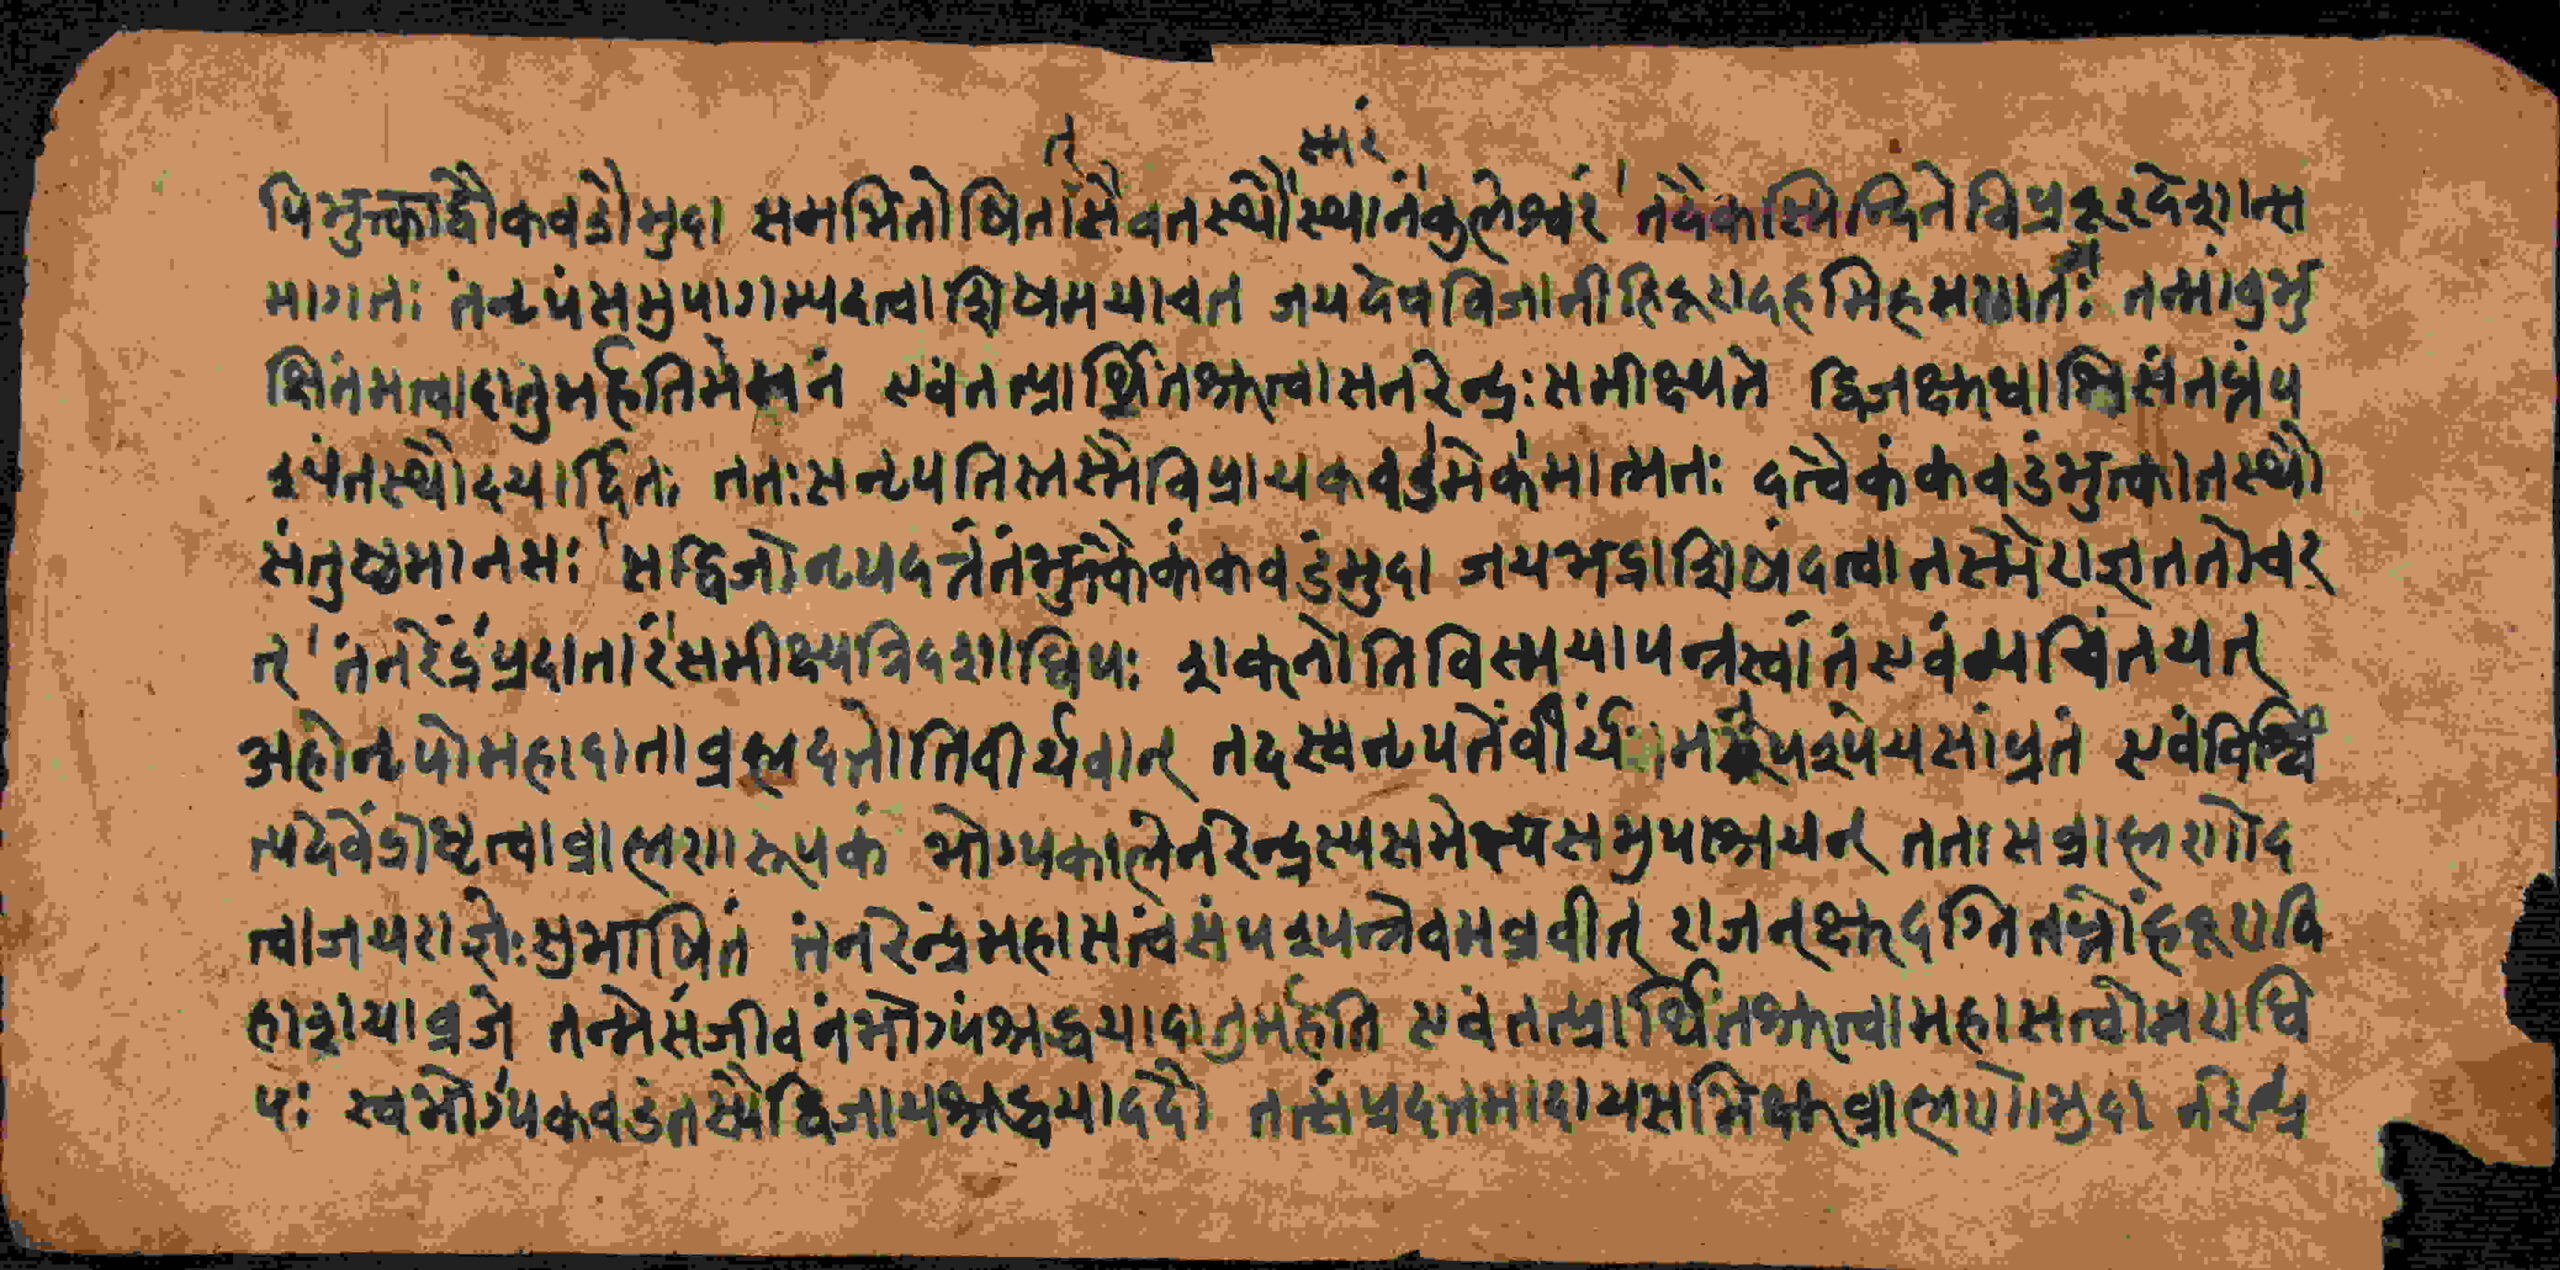 त् स्मरं
पिभुक्त्काद्वौकवडौमुदा समभितोषितांसैवतस्थौस्थानंकुलेश्वरं तदैकस्मिन्दिनेविप्रदूरदेशात्स
मागतः तंनृपंसमुपागम्यदत्वाशिषमयाचत जयदेवविजानीहिदूरादहमिह तन्मांवुभु
क्षितंमत्वादातुमर्हतिमे एवंतत्प्रार्थितंश्रुत्वासनरेन्द्रःसमीक्ष्यते द्विजक्षुधाग्निसंतप्तंप
श्यंतस्थौदयार्द्दितः ततःसनृपतिस्तस्मैविप्रायकवडंमेकमात्मनः दत्वैकंकवडंभुत्क्कातस्थौ
संतुष्टमानसः सद्विजोनृपदत्तंतंभुत्क्कैकंकवडंमुदा जयभद्राशिषंदत्वातस्मैराज्ञततोचर
त् तंनरेंद्रंप्रदातारंसमीक्ष्यत्रिदशाधिपः शक्रनोतिविस्मयापन्नस्वांतंएवंव्यचिंतयत्
अहोनृपोमहादाताव्रह्मदत्तोतिवीर्यवान् तदस्वनृपतेंवीर्यं एवंविश्चि
त्यदेवेंद्रोधृत्वाव्राह्मणरूपकं भोग्यकालेनरेन्द्रस्यसमेत्यसमुपाश्रयन् ततःसव्राह्मणोद
त्वाजयराज्ञेःसुभाषितं तंनरेन्द्रंमहासत्वंसंपश्यन्नेवमव्रवीत् राजन्क्षुदग्नितप्तोंहदूरावि
हाशयाव्रजे तन्मेसंजीवनंभोग्यंश्रद्धयादातुमर्हति एवंतत्प्रार्थितंश्रुत्वामहासत्वोनराधि
पः स्वभोग्यंकवडंतस्यैद्विजायश्रद्धयाददौ तत्संप्रदत्तमादायसभिक्षुव्राह्मणोमुदा